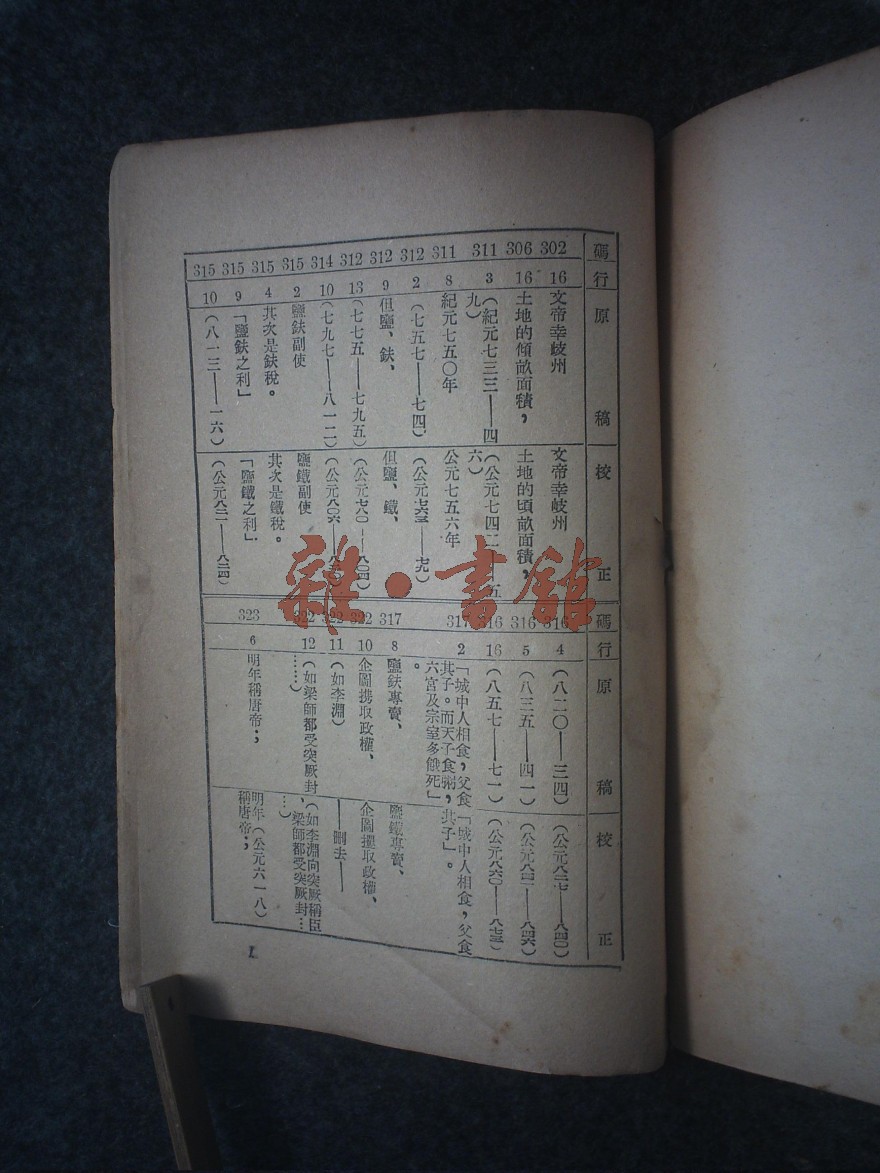 碼 行 原稿 校正
302 16 文帝幸歧州 文帝幸岐州
306 16 土地的傾畝面積, 土地的頃畝面積,
311 3 (紀元七三三——四九) (公元七四二——五六)
311 8 紀元七五〇年 公元七五六年
312 2 (七五七——七四) (公元七六三——七九)
312 9 但鹽、鈇、 但鹽、鐵、
312 13 (七七五——七九五) (公元七八〇——八〇四)
314 10 (七九七——八一二) (公元八〇六——八二〇)
315 2 鹽鈇副使 鹽鐵副使
315 4 其次是鈇稅。 其次是鐵稅。
315 9 「鹽鈇之利」 「鹽鐵之利」
315 10 (八一三——一六) (公元八二一——八二四)
碼 行 原稿 校正
316 4 (八二〇——三四) (公元八二七——八四〇)
316 5 (八三五——四一) (公元八四一——八四六)
316 16 (八五七——七一) (公元八六〇——八七三)
317 2 「城中人相食,父食其子。而天子食粥,六宮及宗室多餓死」。 「城中人相食,父食其子」。
317 8 鹽鈇專賣、 鹽鐵專賣、
322 10 企圖携取政權、 企圖攫取政權、
322 11 (如李淵) ——刪去——
322 12 (如梁師都受突厥封……) (如李淵向突厥稱臣、梁師都受突厥封……)
323 6 明年稱唐帝; 明年(公元六一八)稱唐帝;
雜·書館